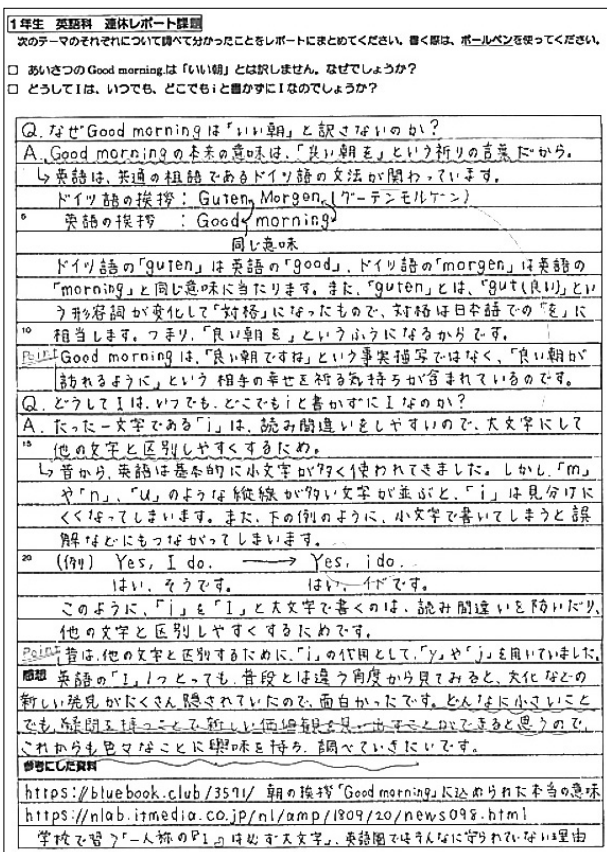 1年生 英語科 連休レポート課題
次のテーマのそれぞれについて調べて分かったことをレポートにまとめてください。書く際は、ボールペンを使ってください。
□ あいさつの Good morning.は「いい朝」とは訳しません。なぜでしょうか？
□ どうして I は、いつでも、どこでも i と書かずに I なのでしょうか？
Q. なぜ Good morning は「いい朝」と訳さないのか？
A. Good morning の本来の意味は、「良い朝を」という祈りの言葉だから。
↳ 英語は、共通の祖語であるドイツ語の文法が関わっています。
ドイツ語の挨拶 : Guten Morgen (グーテンモルゲン)
5 英語の挨拶 : Good morning
同じ意味
ドイツ語の「guten」は英語の「good」、ドイツ語の「morgen」は英語の
「morning」と同じ意味に当たります。また、「guten」とは、「gut(良い)」とい
う形容詞が変化して「対格」になったもので、対格は日本語での「を」に
10 相当します。つまり、「良い朝を」というふうになるからです。
Point Good morning は、「良い朝ですね」という事実描写ではなく、「良い朝が
訪れるように」という相手の幸せを祈る気持ちが含まれているのです。
Q. どうして I は、いつでも、どこでも i と書かずに I なのか？
A. たった一文字である「i」は、読み間違いをしやすいので、大文字にして
15 他の文字と区別しやすくするため。
↳ 昔から、英語は基本的に小文字が多く使われてきました。しかし、「m」
や「n」、「u」のような縦線が多い文字が並ぶと、「i」は見分けに
くくなってしまいます。また、下の例のように、小文字で書いてしまうと誤
解などにもつながってしまいます。
20 (例) Yes, I do. → Yes, ido.
はい、そうです。 はい、イドです。
このように、「i」を「I」と大文字で書くのは、読み間違いを防いだり、
他の文字と区別しやすくするためです。
Point 昔は、他の文字と区別するために、「i」の代用として、「y」や「j」を用いていました。
感想 英語の「I」1つとっても、普段とは違う角度から見てみると、文化などの
新しい発見がたくさん隠されていたので、面白かったです。どんなに小さいこと
でも、疑問を持つことで新しい価値観を見い出すことができると思うので、
これからも色々なことに興味を持ち、調べていきたいです。
参考にした資料
https://bluebook.club/3571/ 朝の挨拶「Good morning」に込められた本当の意味
https://nlab.itmedia.co.jp/nl/amp/1809/20/news098.html
学校で習う「一人称の『I』は必ず大文字」、英語圏ではそんなに守られていない理由